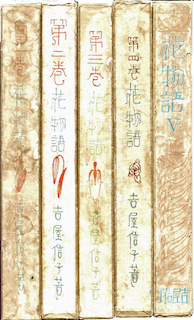 第一巻 花物語
第二巻 花物語 吉屋信子著
第三巻 花物語 吉屋信子著
第四巻 花物語 吉屋信子著
花物語 V